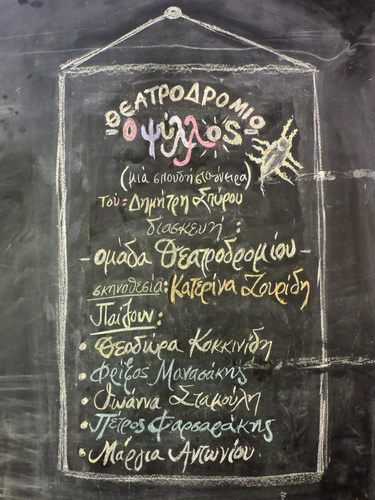 ΘΕΑΤΡΟΔΡΟΜΙΟ
- Ο Ψύλλος -
(μια σπουδή στο όνειρο)
του: Δημήτρη Σπύρου
διασκευή:
- ομάδα Θεατροδρομίου -
σκηνοθεσία: Κατερίνα Ζουρίδη
Παίζουν:
• Θεοδώρα Κοκκινίδη
• Φρίξος Μανασάκης
• Ιωάννα Σταμούλη
• Πέτρος Φαρσαράκης
• Μάργια Αντωνίου